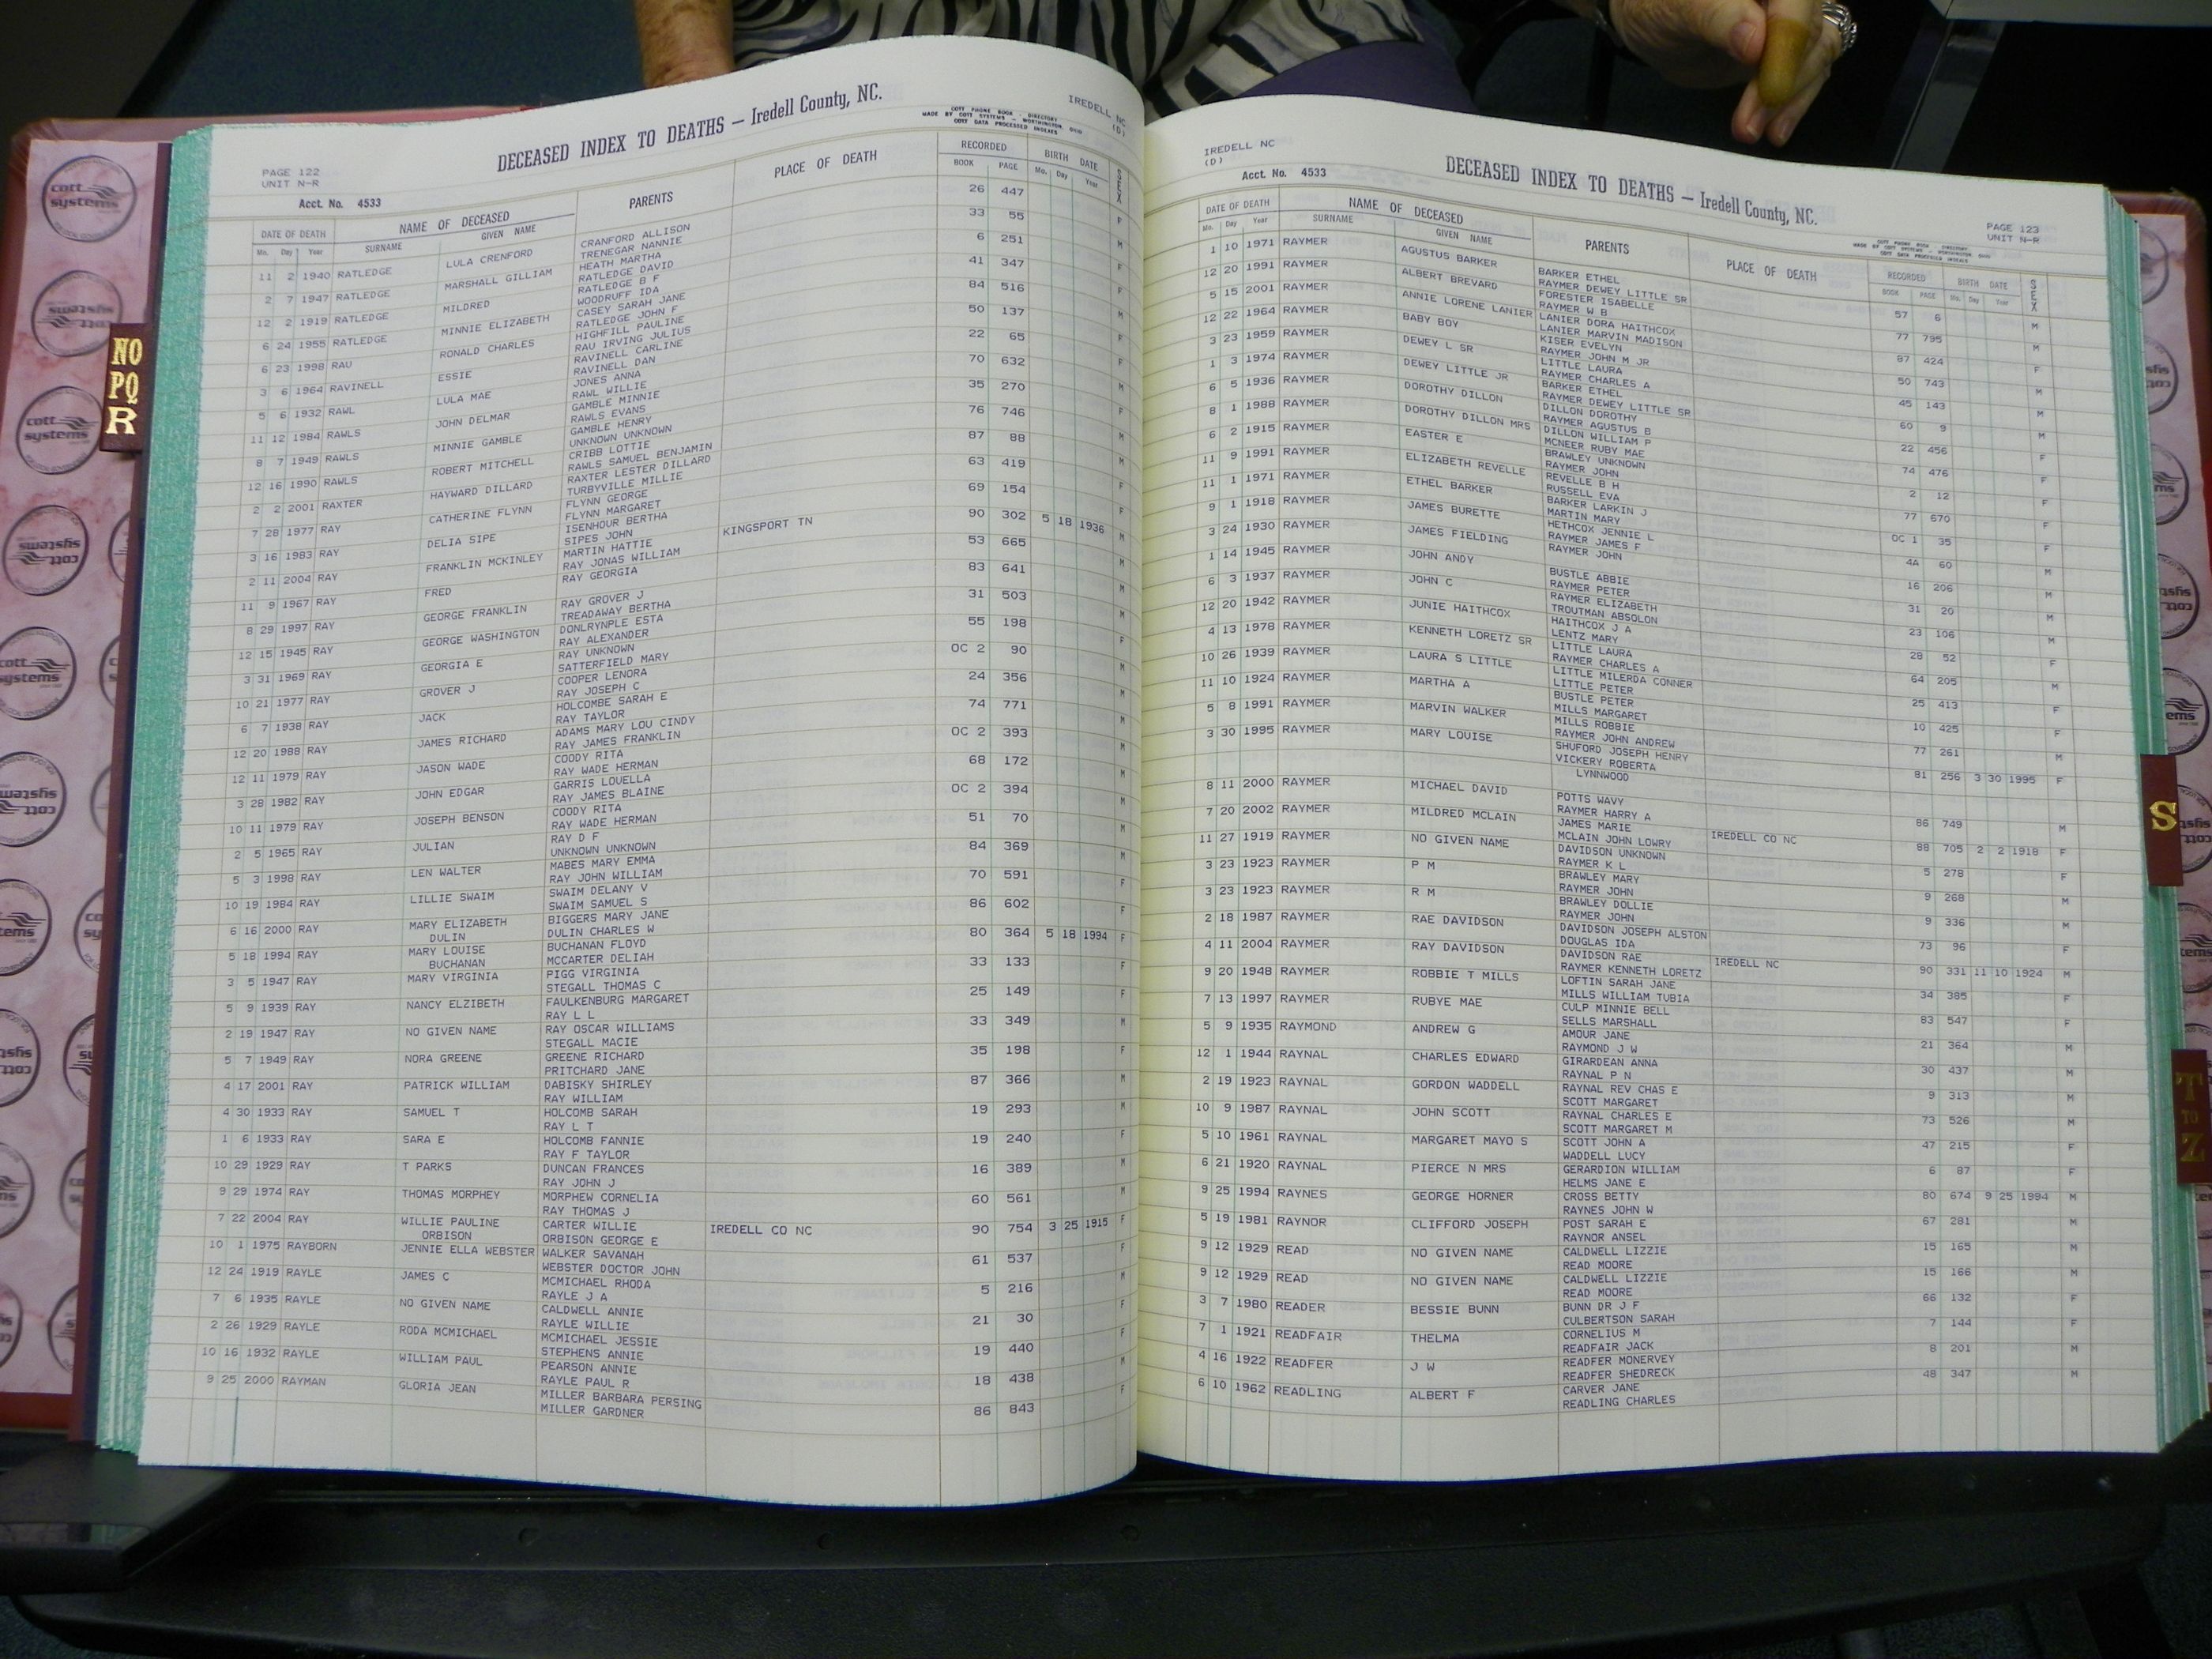 PAGE 122
UNIT N-R
Acct. No. 4533
DECEASED INDEX TO DEATHS — Iredell County, NC.
COTT PHONE BOOK - DIRECTORY
MADE BY COTT SYSTEMS — WORTHINGTON OHIO
COTT DATA PROCESSED INDEXES
IREDELL NC
(D)
DATE OF DEATH NAME OF DECEASED PARENTS PLACE OF DEATH RECORDED BIRTH DATE SEX
Mo. Day Year SURNAME GIVEN NAME BOOK PAGE Mo. Day Year
11 2 1940 RATLEDGE LULA CRENFORD CRANFORD ALLISON 26 447 F
TRENEGAR NANNIE
2 7 1947 RATLEDGE MARSHALL GILLIAM HEATH MARTHA 33 55 M
RATLEDGE DAVID
12 2 1919 RATLEDGE MILDRED RATLEDGE B F 6 251 F
WOODRUFF IDA
6 24 1955 RATLEDGE MINNIE ELIZABETH CASEY SARAH JANE 41 347 F
RATLEDGE JOHN F
6 23 1998 RAU RONALD CHARLES HIGHFILL PAULINE 84 516 M
RAU IRVING JULIUS
3 6 1964 RAVINELL ESSIE RAVINELL CARLINE 50 137 F
RAVINELL DAN
5 6 1932 RAWL LULA MAE JONES ANNA 22 65 F
RAWL WILLIE
11 12 1984 RAWLS JOHN DELMAR GAMBLE MINNIE 70 632 M
RAWLS EVANS
8 7 1949 RAWLS MINNIE GAMBLE GAMBLE HENRY 35 270 F
UNKNOWN UNKNOWN
12 16 1990 RAWLS ROBERT MITCHELL CRIBB LOTTIE 76 746 M
RAWLS SAMUEL BENJAMIN
2 2 2001 RAXTER HAYWARD DILLARD RAXTER LESTER DILLARD 87 88 M
TURBYVILLE MILLIE
7 28 1977 RAY CATHERINE FLYNN FLYNN GEORGE 63 419 F
FLYNN MARGARET
3 16 1983 RAY DELIA SIPE ISENHOUR BERTHA 69 154 F
SIPES JOHN
2 11 2004 RAY FRANKLIN MCKINLEY MARTIN HATTIE KINGSPORT TN 90 302 5 18 1936 M
RAY JONAS WILLIAM
11 9 1967 RAY FRED RAY GEORGIA 53 665 M
8 29 1997 RAY GEORGE FRANKLIN RAY GROVER J 83 641 M
TREADAWAY BERTHA
12 15 1945 RAY GEORGE WASHINGTON DONLRYNPLE ESTA 31 503 M
RAY ALEXANDER
3 31 1969 RAY GEORGIA E RAY UNKNOWN 55 198 F
SATTERFIELD MARY
10 21 1977 RAY GROVER J COOPER LENORA OC 2 90 M
RAY JOSEPH C
6 7 1938 RAY JACK HOLCOMBE SARAH E 24 356 M
RAY TAYLOR
12 20 1988 RAY JAMES RICHARD ADAMS MARY LOU CINDY 74 771 M
RAY JAMES FRANKLIN
12 11 1979 RAY JASON WADE COODY RITA OC 2 393 M
RAY WADE HERMAN
3 28 1982 RAY JOHN EDGAR GARRIS LOUELLA 68 172 M
RAY JAMES BLAINE
10 11 1979 RAY JOSEPH BENSON COODY RITA OC 2 394 M
RAY WADE HERMAN
2 5 1965 RAY JULIAN RAY D F 51 70 M
UNKNOWN UNKNOWN
5 3 1998 RAY LEN WALTER MABES MARY EMMA 84 369 M
RAY JOHN WILLIAM
10 19 1984 RAY LILLIE SWAIM SWAIM DELANY V 70 591 F
SWAIM SAMUEL S
6 16 2000 RAY MARY ELIZABETH BIGGERS MARY JANE 86 602 F
DULIN DULIN CHARLES W
5 18 1994 RAY MARY LOUISE BUCHANAN FLOYD 80 364 5 18 1994 F
BUCHANAN MCCARTER DELIAH
3 5 1947 RAY MARY VIRGINIA PIGG VIRGINIA 33 133 F
STEGALL THOMAS C
5 9 1939 RAY NANCY ELZIBETH FAULKENBURG MARGARET 25 149 F
RAY L L
2 19 1947 RAY NO GIVEN NAME RAY OSCAR WILLIAMS 33 349 M
STEGALL MACIE
5 7 1949 RAY NORA GREENE GREENE RICHARD 35 198 F
PRITCHARD JANE
4 17 2001 RAY PATRICK WILLIAM DABISKY SHIRLEY 87 366 M
RAY WILLIAM
4 30 1933 RAY SAMUEL T HOLCOMB SARAH 19 293 M
RAY L T
1 6 1933 RAY SARA E HOLCOMB FANNIE 19 240 F
RAY F TAYLOR
10 29 1929 RAY T PARKS DUNCAN FRANCES 16 389 M
RAY JOHN J
9 29 1974 RAY THOMAS MORPHEY MORPHEW CORNELIA 60 561 M
RAY THOMAS J
7 22 2004 RAY WILLIE PAULINE CARTER WILLIE IREDELL CO NC 90 754 3 25 1915 F
ORBISON ORBISON GEORGE E
10 1 1975 RAYBORN JENNIE ELLA WEBSTER WALKER SAVANAH 61 537 F
WEBSTER DOCTOR JOHN
12 24 1919 RAYLE JAMES C MCMICHAEL RHODA 5 216 M
RAYLE J A
7 6 1935 RAYLE NO GIVEN NAME CALDWELL ANNIE 21 30 F
RAYLE WILLIE
2 26 1929 RAYLE RODA MCMICHAEL MCMICHAEL JESSIE 19 440 F
STEPHENS ANNIE
10 16 1932 RAYLE WILLIAM PAUL PEARSON ANNIE 18 438 M
RAYLE PAUL R
9 25 2000 RAYMAN GLORIA JEAN MILLER BARBARA PERSING 86 843 F
MILLER GARDNER
IREDELL NC
(D)
Acct. No. 4533
DECEASED INDEX TO DEATHS — Iredell County, NC.
PAGE 123
UNIT N-R
COTT PHONE BOOK - DIRECTORY
MADE BY COTT SYSTEMS — WORTHINGTON OHIO
COTT DATA PROCESSED INDEXES
DATE OF DEATH NAME OF DECEASED PARENTS PLACE OF DEATH RECORDED BIRTH DATE SEX
Mo. Day Year SURNAME GIVEN NAME BOOK PAGE Mo. Day Year
1 10 1971 RAYMER AGUSTUS BARKER BARKER ETHEL 57 6 M
RAYMER DEWEY LITTLE SR
12 20 1991 RAYMER ALBERT BREVARD FORESTER ISABELLE 77 795 M
RAYMER W B
5 15 2001 RAYMER ANNIE LORENE LANIER LANIER DORA HAITHCOX 87 424 F
LANIER MARVIN MADISON
12 22 1964 RAYMER BABY BOY KISER EVELYN 50 743 M
RAYMER JOHN M JR
3 23 1959 RAYMER DEWEY L SR LITTLE LAURA 45 143 M
RAYMER CHARLES A
1 3 1974 RAYMER DEWEY LITTLE JR BARKER ETHEL 60 9 M
RAYMER DEWEY LITTLE SR
6 5 1936 RAYMER DOROTHY DILLON DILLON DOROTHY 22 456 F
RAYMER AGUSTUS B
8 1 1988 RAYMER DOROTHY DILLON MRS DILLON WILLIAM P 74 476 F
MCNEER RUBY MAE
6 2 1915 RAYMER EASTER E BRAWLEY UNKNOWN 2 12 F
RAYMER JOHN
11 9 1991 RAYMER ELIZABETH REVELLE REVELLE B H 77 670 F
RUSSELL EVA
11 1 1971 RAYMER ETHEL BARKER BARKER LARKIN J OC 1 35 F
MARTIN MARY
9 1 1918 RAYMER JAMES BURETTE HETHCOX JENNIE L 4A 60 M
RAYMER JAMES F
3 24 1930 RAYMER JAMES FIELDING RAYMER JOHN 16 206 M
1 14 1945 RAYMER JOHN ANDY BUSTLE ABBIE 31 20 M
RAYMER PETER
6 3 1937 RAYMER JOHN C RAYMER ELIZABETH 23 106 M
TROUTMAN ABSOLON
12 20 1942 RAYMER JUNIE HAITHCOX HAITHCOX J A 28 52 F
LENTZ MARY
4 13 1978 RAYMER KENNETH LORETZ SR LITTLE LAURA 64 205 M
RAYMER CHARLES A
10 26 1939 RAYMER LAURA S LITTLE LITTLE MILERDA CONNER 25 413 F
LITTLE PETER
11 10 1924 RAYMER MARTHA A BUSTLE PETER 10 425 F
MILLS MARGARET
5 8 1991 RAYMER MARVIN WALKER MILLS ROBBIE 77 261 M
RAYMER JOHN ANDREW
3 30 1995 RAYMER MARY LOUISE SHUFORD JOSEPH HENRY 81 256 3 30 1995 F
VICKERY ROBERTA
LYNNWOOD
8 11 2000 RAYMER MICHAEL DAVID POTTS WAVY 86 749 M
RAYMER HARRY A
7 20 2002 RAYMER MILDRED MCLAIN JAMES MARIE IREDELL CO NC 88 705 2 2 1918 F
MCLAIN JOHN LOWRY
11 27 1919 RAYMER NO GIVEN NAME DAVIDSON UNKNOWN 5 278 F
RAYMER K L
3 23 1923 RAYMER P M BRAWLEY MARY 9 268 M
RAYMER JOHN
3 23 1923 RAYMER R M BRAWLEY DOLLIE 9 336 M
RAYMER JOHN
2 18 1987 RAYMER RAE DAVIDSON DAVIDSON JOSEPH ALSTON 73 96 F
DOUGLAS IDA
4 11 2004 RAYMER RAY DAVIDSON DAVIDSON RAE IREDELL NC 90 331 11 10 1924 M
RAYMER KENNETH LORETZ
9 20 1948 RAYMER ROBBIE T MILLS LOFTIN SARAH JANE 34 385 F
MILLS WILLIAM TUBIA
7 13 1997 RAYMER RUBYE MAE CULP MINNIE BELL 83 547 F
SELLS MARSHALL
5 9 1935 RAYMOND ANDREW G AMOUR JANE 21 364 M
RAYMOND J W
12 1 1944 RAYNAL CHARLES EDWARD GIRARDEAN ANNA 30 437 M
RAYNAL P N
2 19 1923 RAYNAL GORDON WADDELL RAYNAL REV CHAS E 9 313 M
SCOTT MARGARET
10 9 1987 RAYNAL JOHN SCOTT RAYNAL CHARLES E 73 526 M
SCOTT MARGARET M
5 10 1961 RAYNAL MARGARET MAYO S SCOTT JOHN A 47 215 F
WADDELL LUCY
6 21 1920 RAYNAL PIERCE N MRS GERARDION WILLIAM 6 87 F
HELMS JANE E
9 25 1994 RAYNES GEORGE HORNER CROSS BETTY 80 674 9 25 1994 M
RAYNES JOHN W
5 19 1981 RAYNOR CLIFFORD JOSEPH POST SARAH E 67 281 M
RAYNOR ANSEL
9 12 1929 READ NO GIVEN NAME CALDWELL LIZZIE 15 165 M
READ MOORE
9 12 1929 READ NO GIVEN NAME CALDWELL LIZZIE 15 166 M
READ MOORE
3 7 1980 READER BESSIE BUNN BUNN DR J F 66 132 F
CULBERTSON SARAH
7 1 1921 READFAIR THELMA CORNELIUS M 7 144 F
READFAIR JACK
4 16 1922 READFER J W READFER MONERVEY 8 201 M
READFER SHEDRECK
6 10 1962 READLING ALBERT F CARVER JANE 48 347 M
READLING CHARLES
NO
PQ
R
S
T
TO
Z
cott
systems